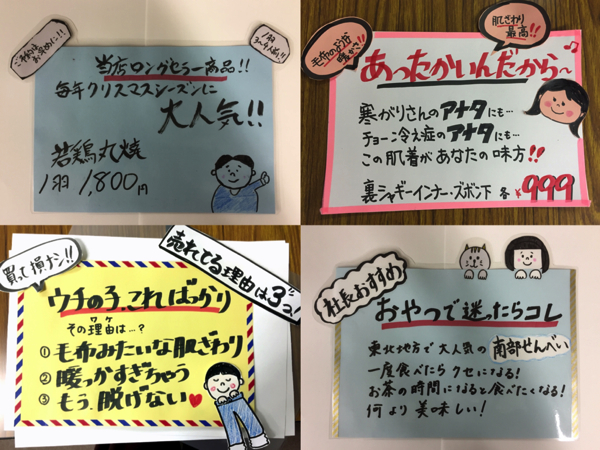 ご予約はお早めに!!
1羽3〜4人前!!
当店ロングセラー商品!!
毎年クリスマスシーズンに
大人気!!
若鶏丸焼
1羽 1,800円
毛布のような暖かさ!!
肌ざわり最高!!
あったかいんだから〜♪
寒がりさんのアナタにも…
チョー冷え症のアナタにも…
この肌着があなたの味方!!
裏シャギーインナー・ズボン下 各¥999
買って損ナシ!!
売れてる理由は3つ!
ウチの子、こればっかり
その理由は…?
ワケ
①毛布みたいな肌ざわり
②暖っかすぎちゃう
③もう、脱げない♥
社長おすすめ
おやつで迷ったらコレ
東北地方で大人気の南部せんべい
一度食べたらクセになる!
お茶の時間になると食べたくなる!
何より美味しい!